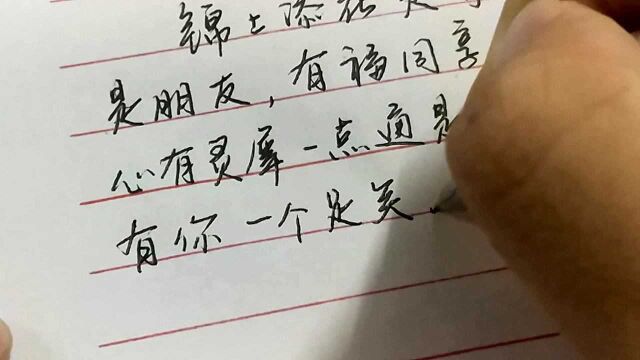 锦上添花是
是朋友,有福同享
心有灵犀一点通是
有你一个是关